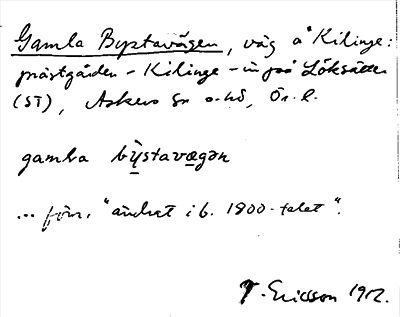 Gamla Bystavägen, väg å Kilinge:
prästgården - Kilinge - in på Löksätter
(ST), Askers sn o. hd, Ör. l.
gamla bystavægən
... förr, "ändrat i b. 1900-talet".
T. Ericsson 1912.